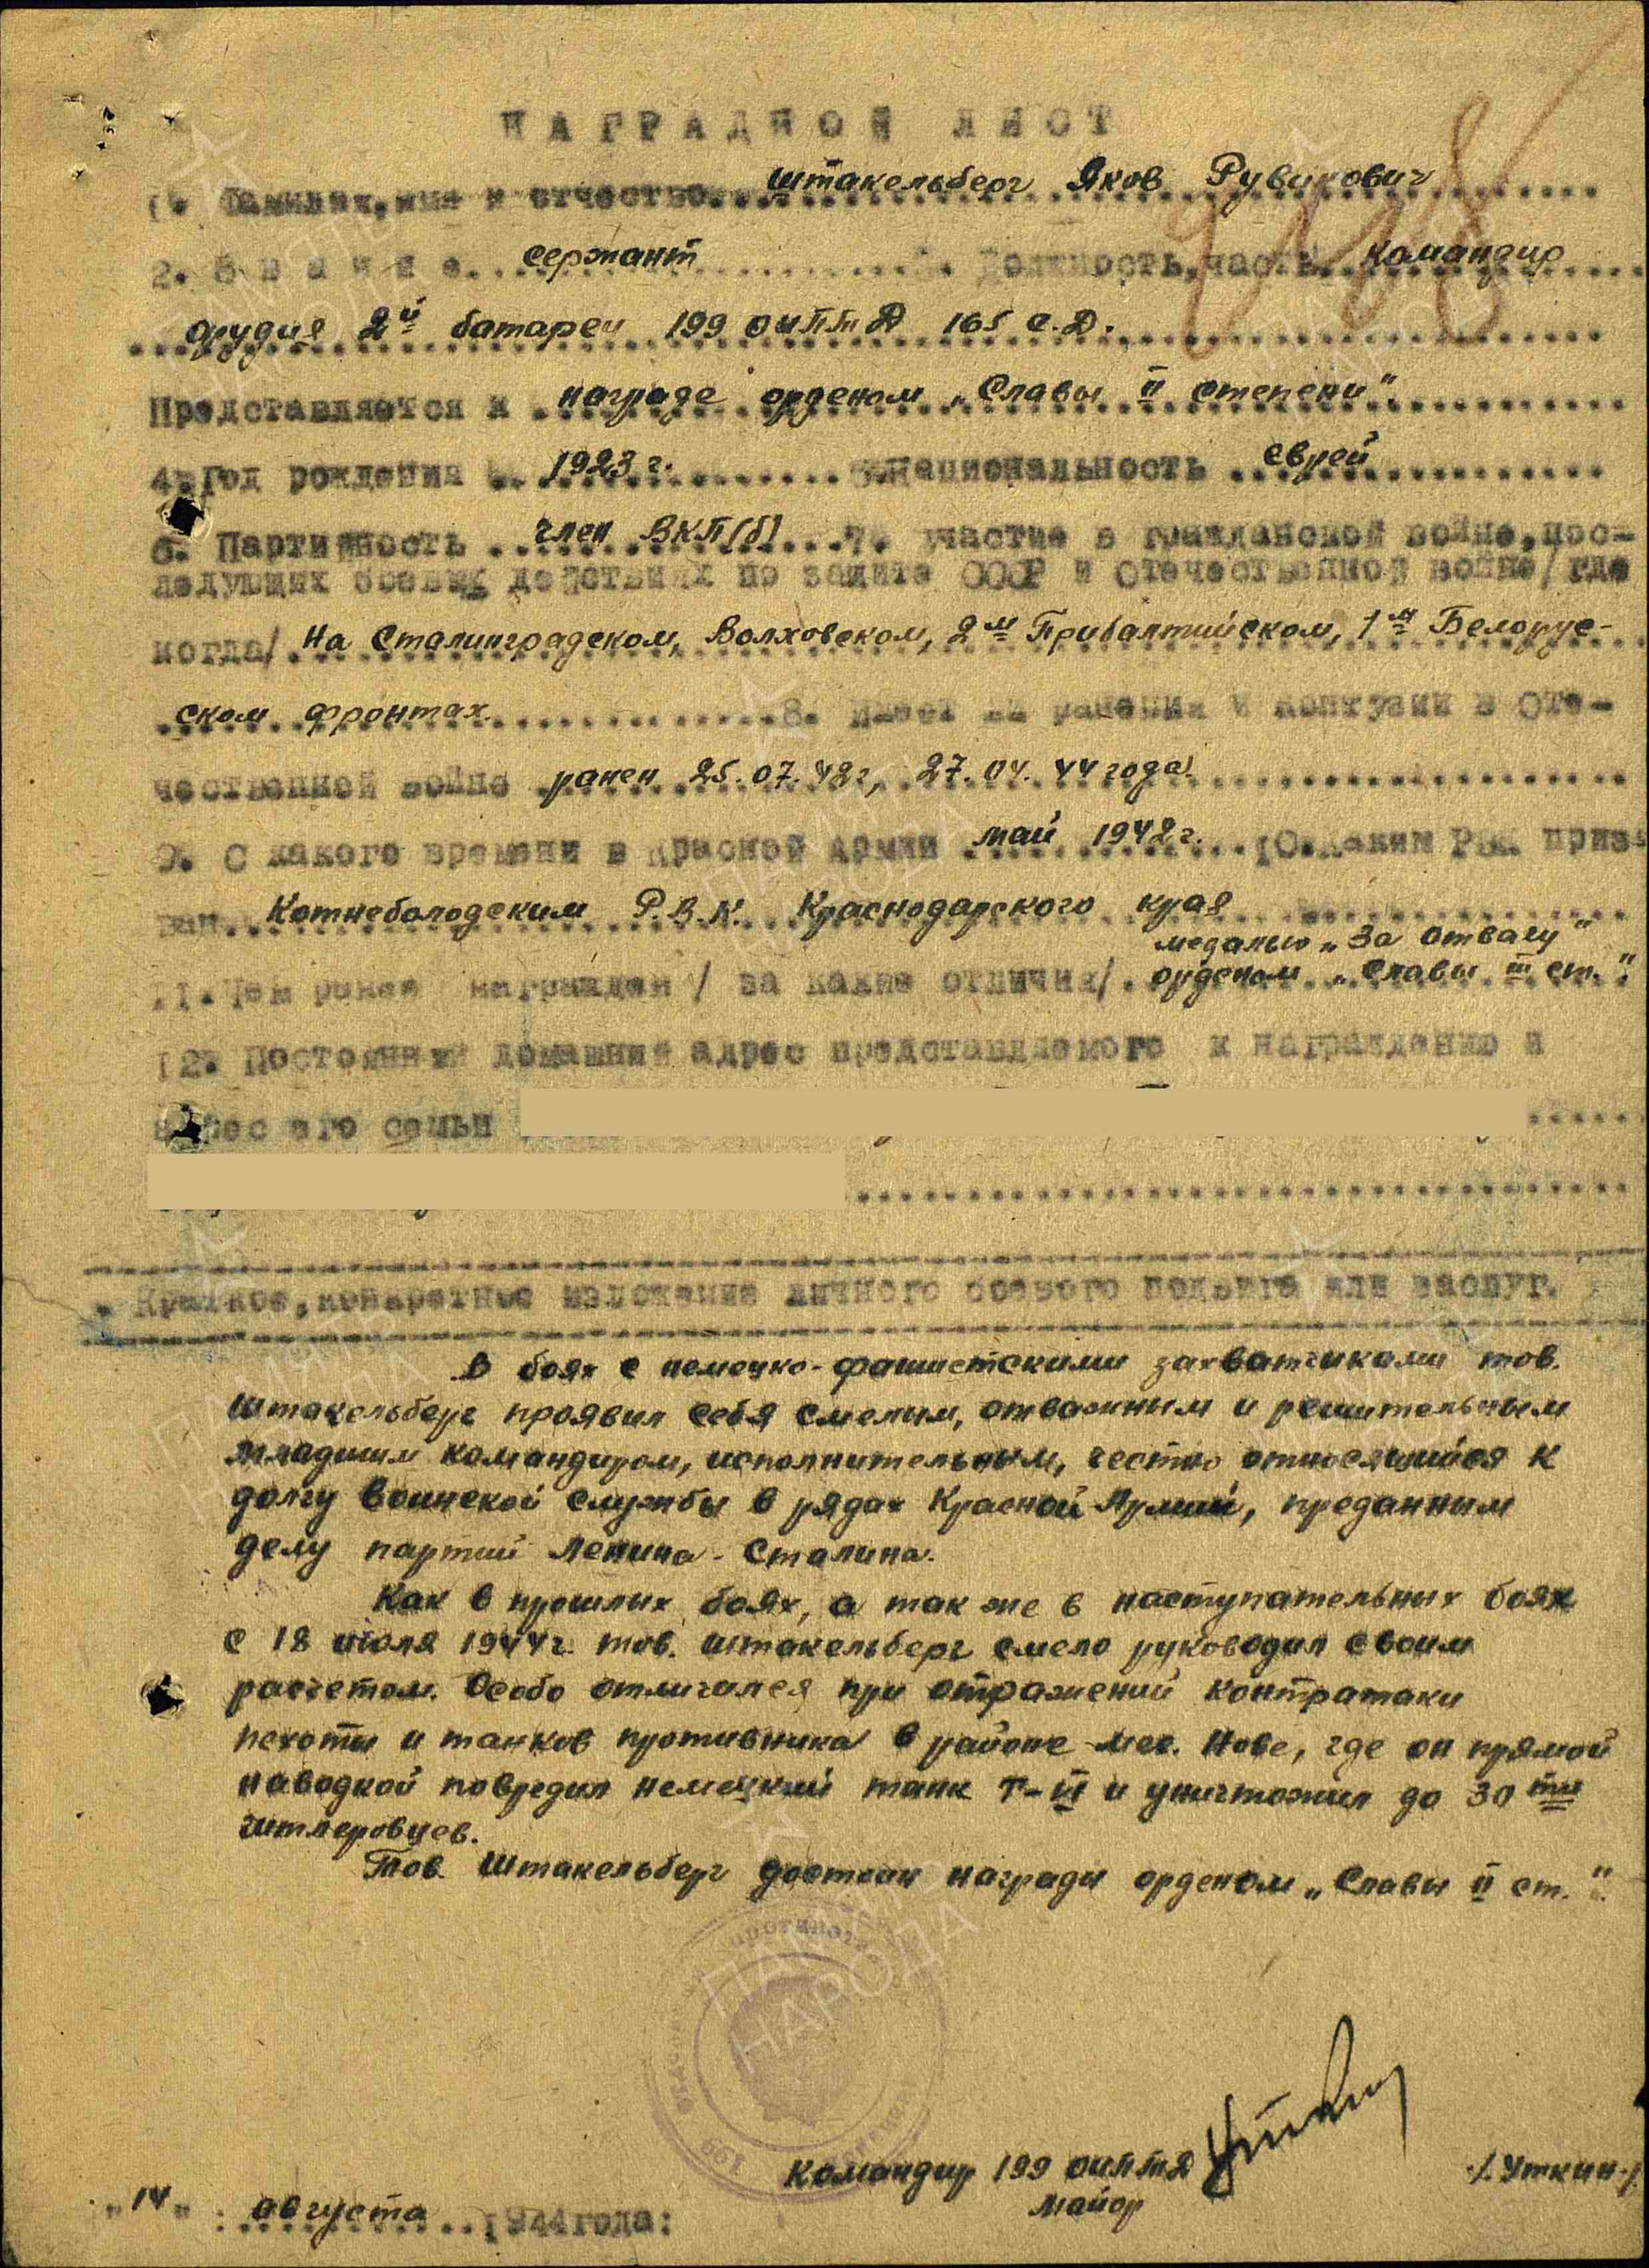 НАГРАДНОЙ ЛИСТ
1. Фамилия, имя и отчество... Штакельберг Яков Рувинович
2. Звание... сержант 3. Должность, часть... командир
орудия 2й батареи 199 оиптД 165 с.Д.
Представляется к награде орденом „Славы II степени".
4. Год рождения 1923 г. 5. Национальность еврей
6. Партийность член ВКП(б) 7. участие в гражданской войне, пос-
ледующих боевых действиях по защите СССР и Отечественной войне/где
когда/ На Сталинградском, Волховском, 2м Прибалтийском, 1м Белорус-
ском фронтах. 8. Имеет ли ранения и контузии в Оте-
чественной войне ранен 25.07.42г, 27.04.44 года.
9. С какого времени в Красной Армии май 1942г. 10. Каким РВК приз-
ван Р.В.К. Краснодарского края
медалью „За отвагу"
11. Чем ранее награжден / за какие отличия/. орденом „Славы III ст.".
12. Постоянный домашний адрес представляемого к награждению и
адрес его семьи
Краткое, конкретное изложение личного боевого подвига или заслуг.
В боях с немецко-фашистскими захватчиками тов.
Штакельберг проявил себя смелым, отважным и решительным
младшим командиром, исполнительным, честно относящийся к
долгу воинской службы в рядах Красной Армии, преданным
делу партии Ленина-Сталина.
Как в прошлых боях, а так же в наступательных боях
с 18 июля 1944г. тов. Штакельберг смело руководил своим
расчетом. Особо отличился при отражений контратаки
пехоты и танков противника в районе мес. Нове, где он прямой
наводкой повредил немецкий танк Т-VI и уничтожил до 30ти
гитлеровцев.
Тов. Штакельберг достоин награды орденом „Славы II ст.".
Командир 199 оиптД
майор
/Уткин/
"14" августа 1944 года:
199
ПАМЯТЬ
НАРОДА